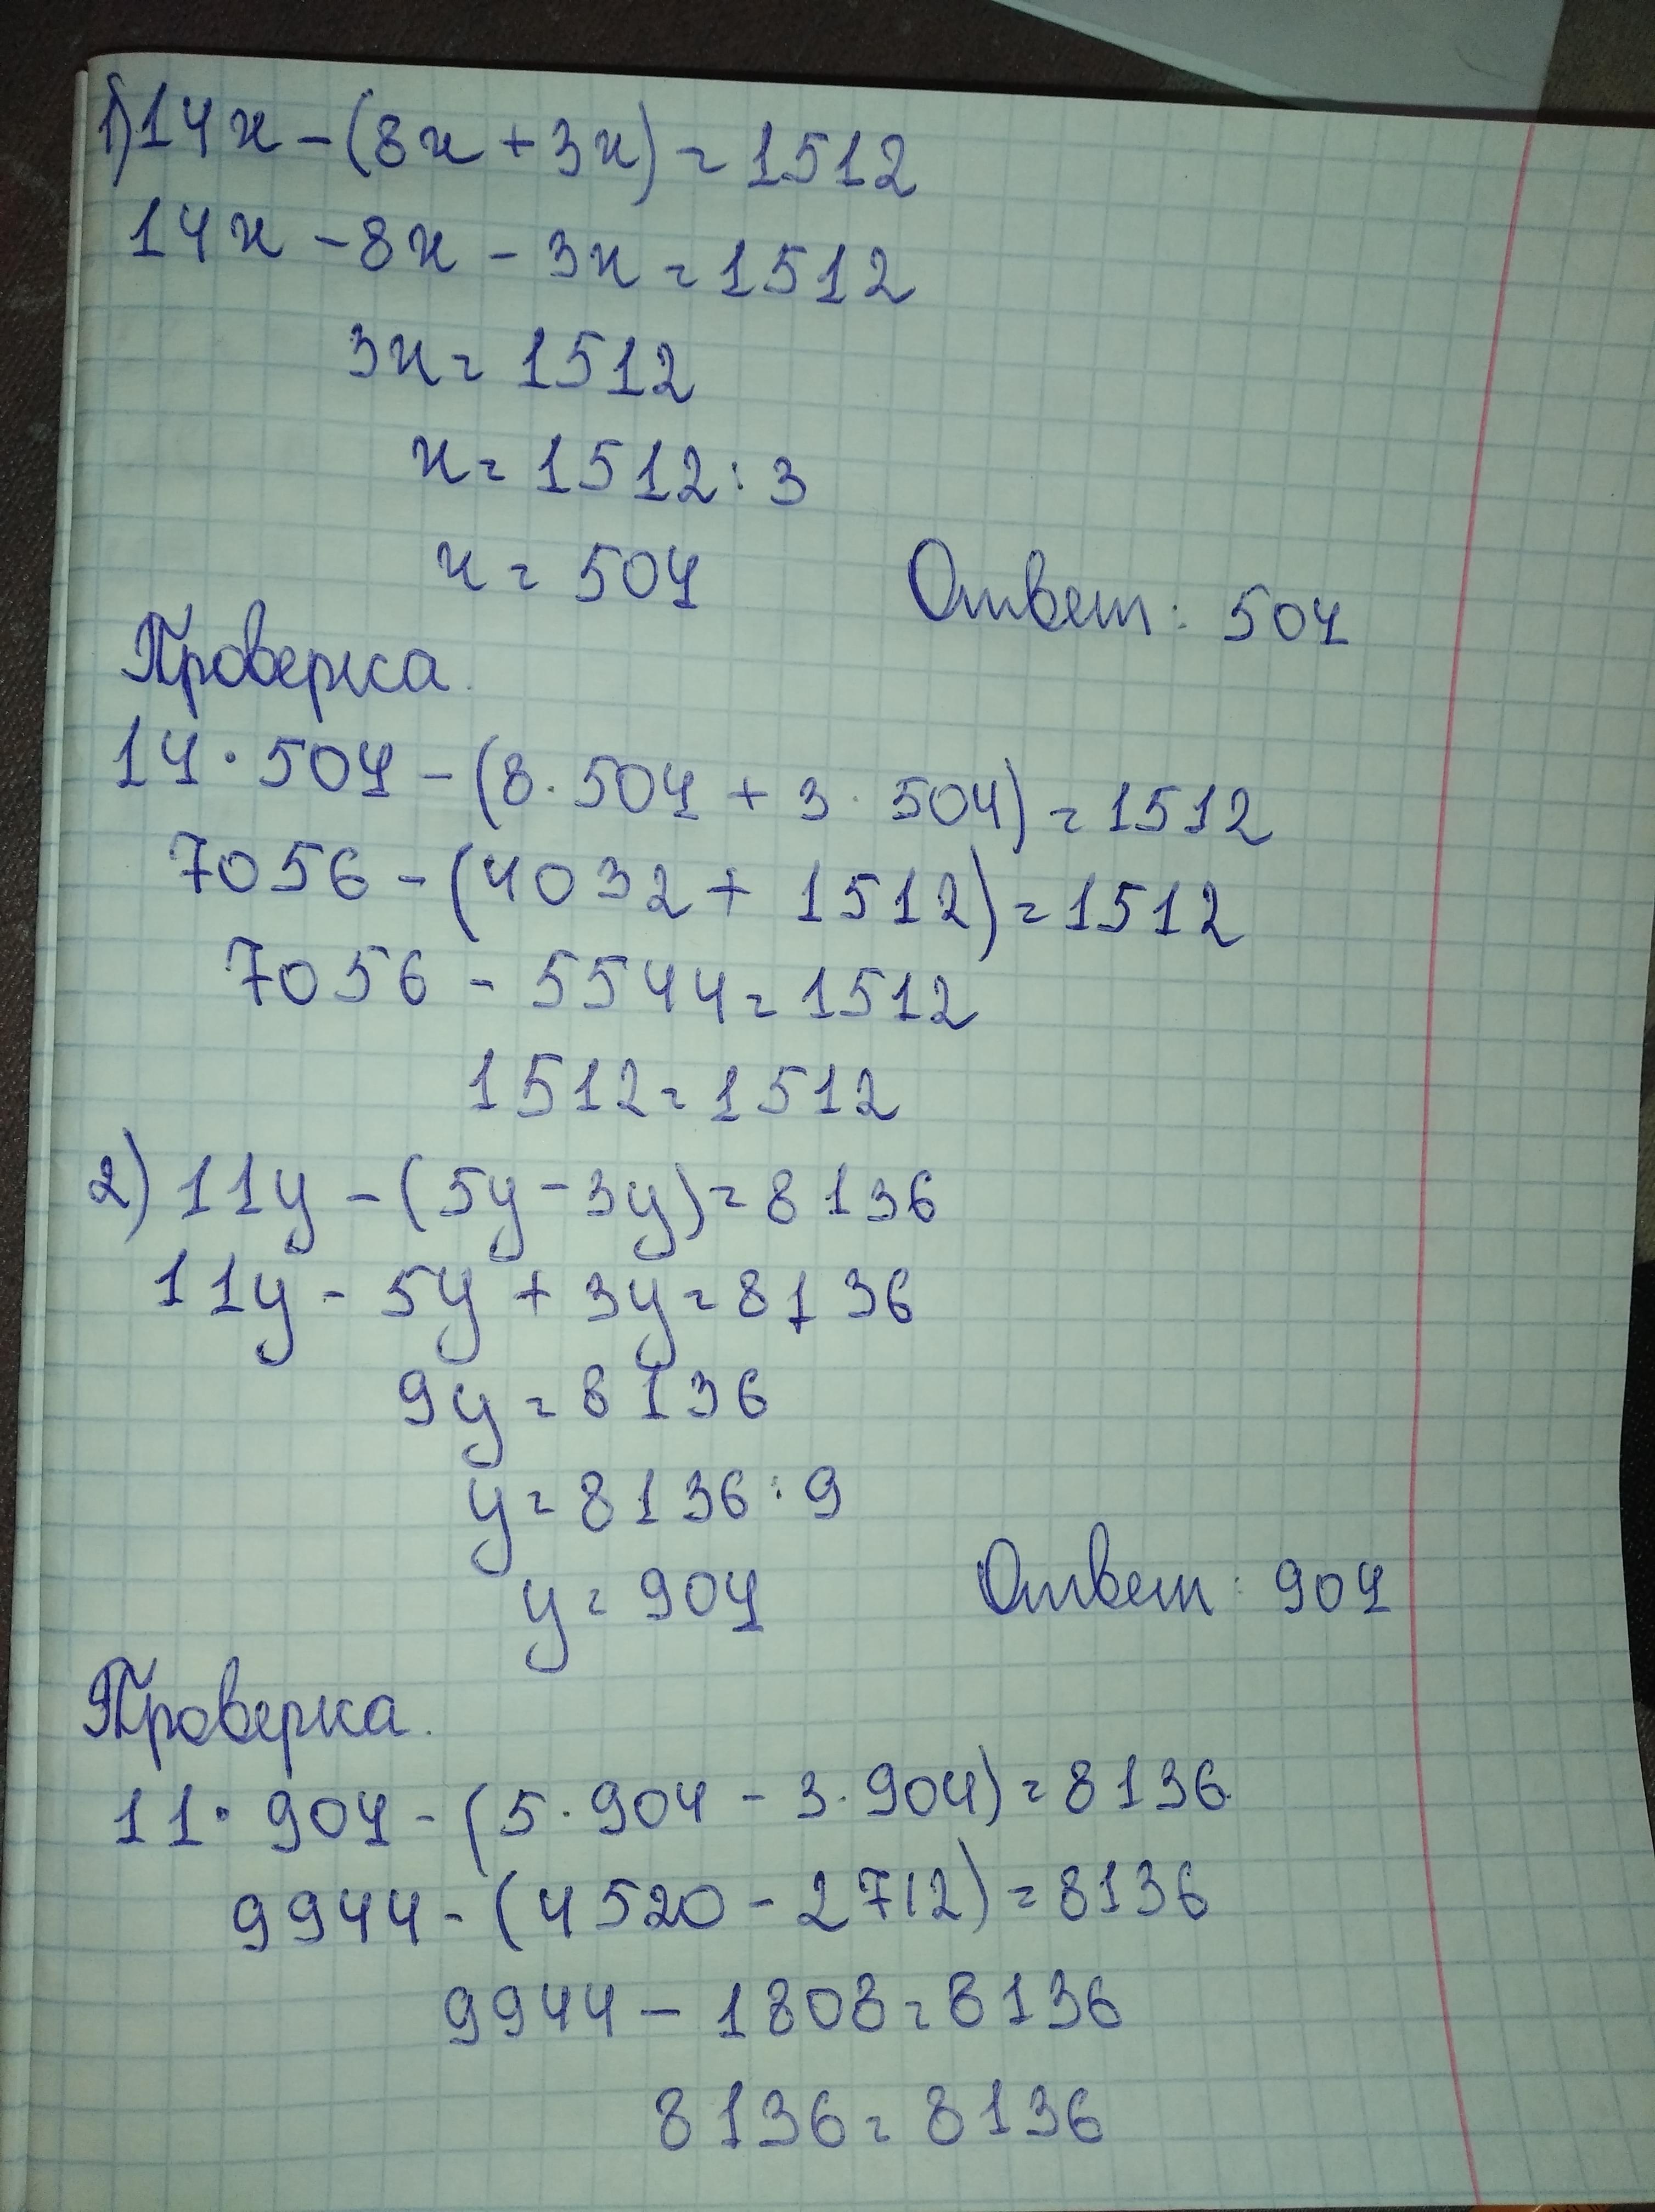 1) 14x - (8x + 3x) = 1512
14x - 8x - 3x = 1512
3x = 1512
x = 1512 : 3
x = 504
Ответ: 504
Проверка.
14 · 504 - (8 · 504 + 3 · 504) = 1512
7056 - (4032 + 1512) = 1512
7056 - 5544 = 1512
1512 = 1512
2) 11y - (5y - 3y) = 8136
11y - 5y + 3y = 8136
9y = 8136
y = 8136 : 9
y = 904
Ответ: 904
Проверка.
11 · 904 - (5 · 904 - 3 · 904) = 8136
9944 - (4520 - 2712) = 8136
9944 - 1808 = 8136
8136 = 8136